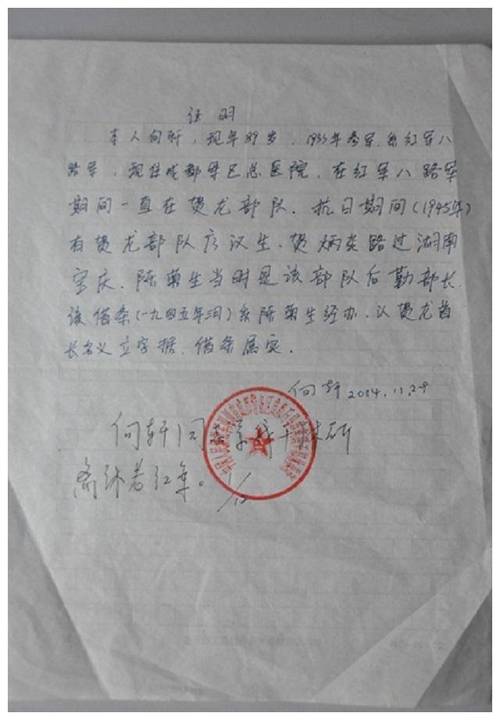 证明
本人向轩，现年89岁，1933年参军，系红军八
路军，现住成都军区总医院，在红军八路军
期间一直在贺龙部队。抗日期间(1945年)
有贺龙部队 路过湖南
宝庆。陈菊生当时是该部队后勤部长
该借条(一九四五年)系陈菊生经办，以贺龙首
长名义立字据，借条属实。
向轩 2014.11.29
向轩同 干休所
离休老红军。1/12